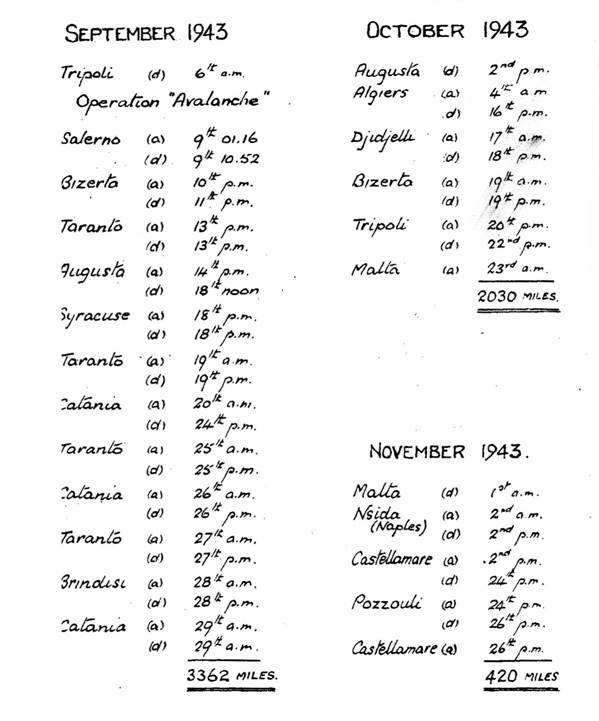 SEPTEMBER 1943
Tripoli (d) 6th a.m.
Operation "Avalanche"
Salerno (a) 9th 01.16
(d) 9th 10.52
Bizerta (a) 10th p.m.
(d) 11th p.m.
Taranto (a) 13th p.m.
(d) 13th p.m.
Augusta (a) 14th p.m.
(d) 18th noon
Syracuse (a) 18th p.m.
(d) 18th p.m.
Taranto (a) 19th a.m.
(d) 19th p.m.
Catania (a) 20th a.m.
(d) 24th p.m.
Taranto (a) 25th a.m.
(d) 25th p.m.
Catania (a) 26th a.m.
(d) 26th p.m.
Taranto (a) 27th a.m.
(d) 27th p.m.
Brindisi (a) 28th a.m.
(d) 28th p.m.
Catania (a) 29th a.m.
(d) 29th a.m.
3362 MILES.
OCTOBER 1943
Augusta (d) 2nd p.m.
Algiers (a) 4th a.m
(d) 16th p.m.
Djidjelli (a) 17th a.m.
(d) 18th p.m.
Bizerta (a) 19th a.m.
(d) 19th p.m.
Tripoli (a) 20th p.m.
(d) 22nd p.m.
Malta (a) 23rd a.m.
2030 MILES.
NOVEMBER 1943.
Malta (d) 1st a.m.
Nsida (a) 2nd a.m.
(Naples) (d) 2nd p.m.
Castellamare (a) 2nd p.m.
(d) 24th p.m.
Pozzouli (a) 24th p.m.
(d) 26th p.m.
Castellamare (a) 26th p.m.
420 MILES